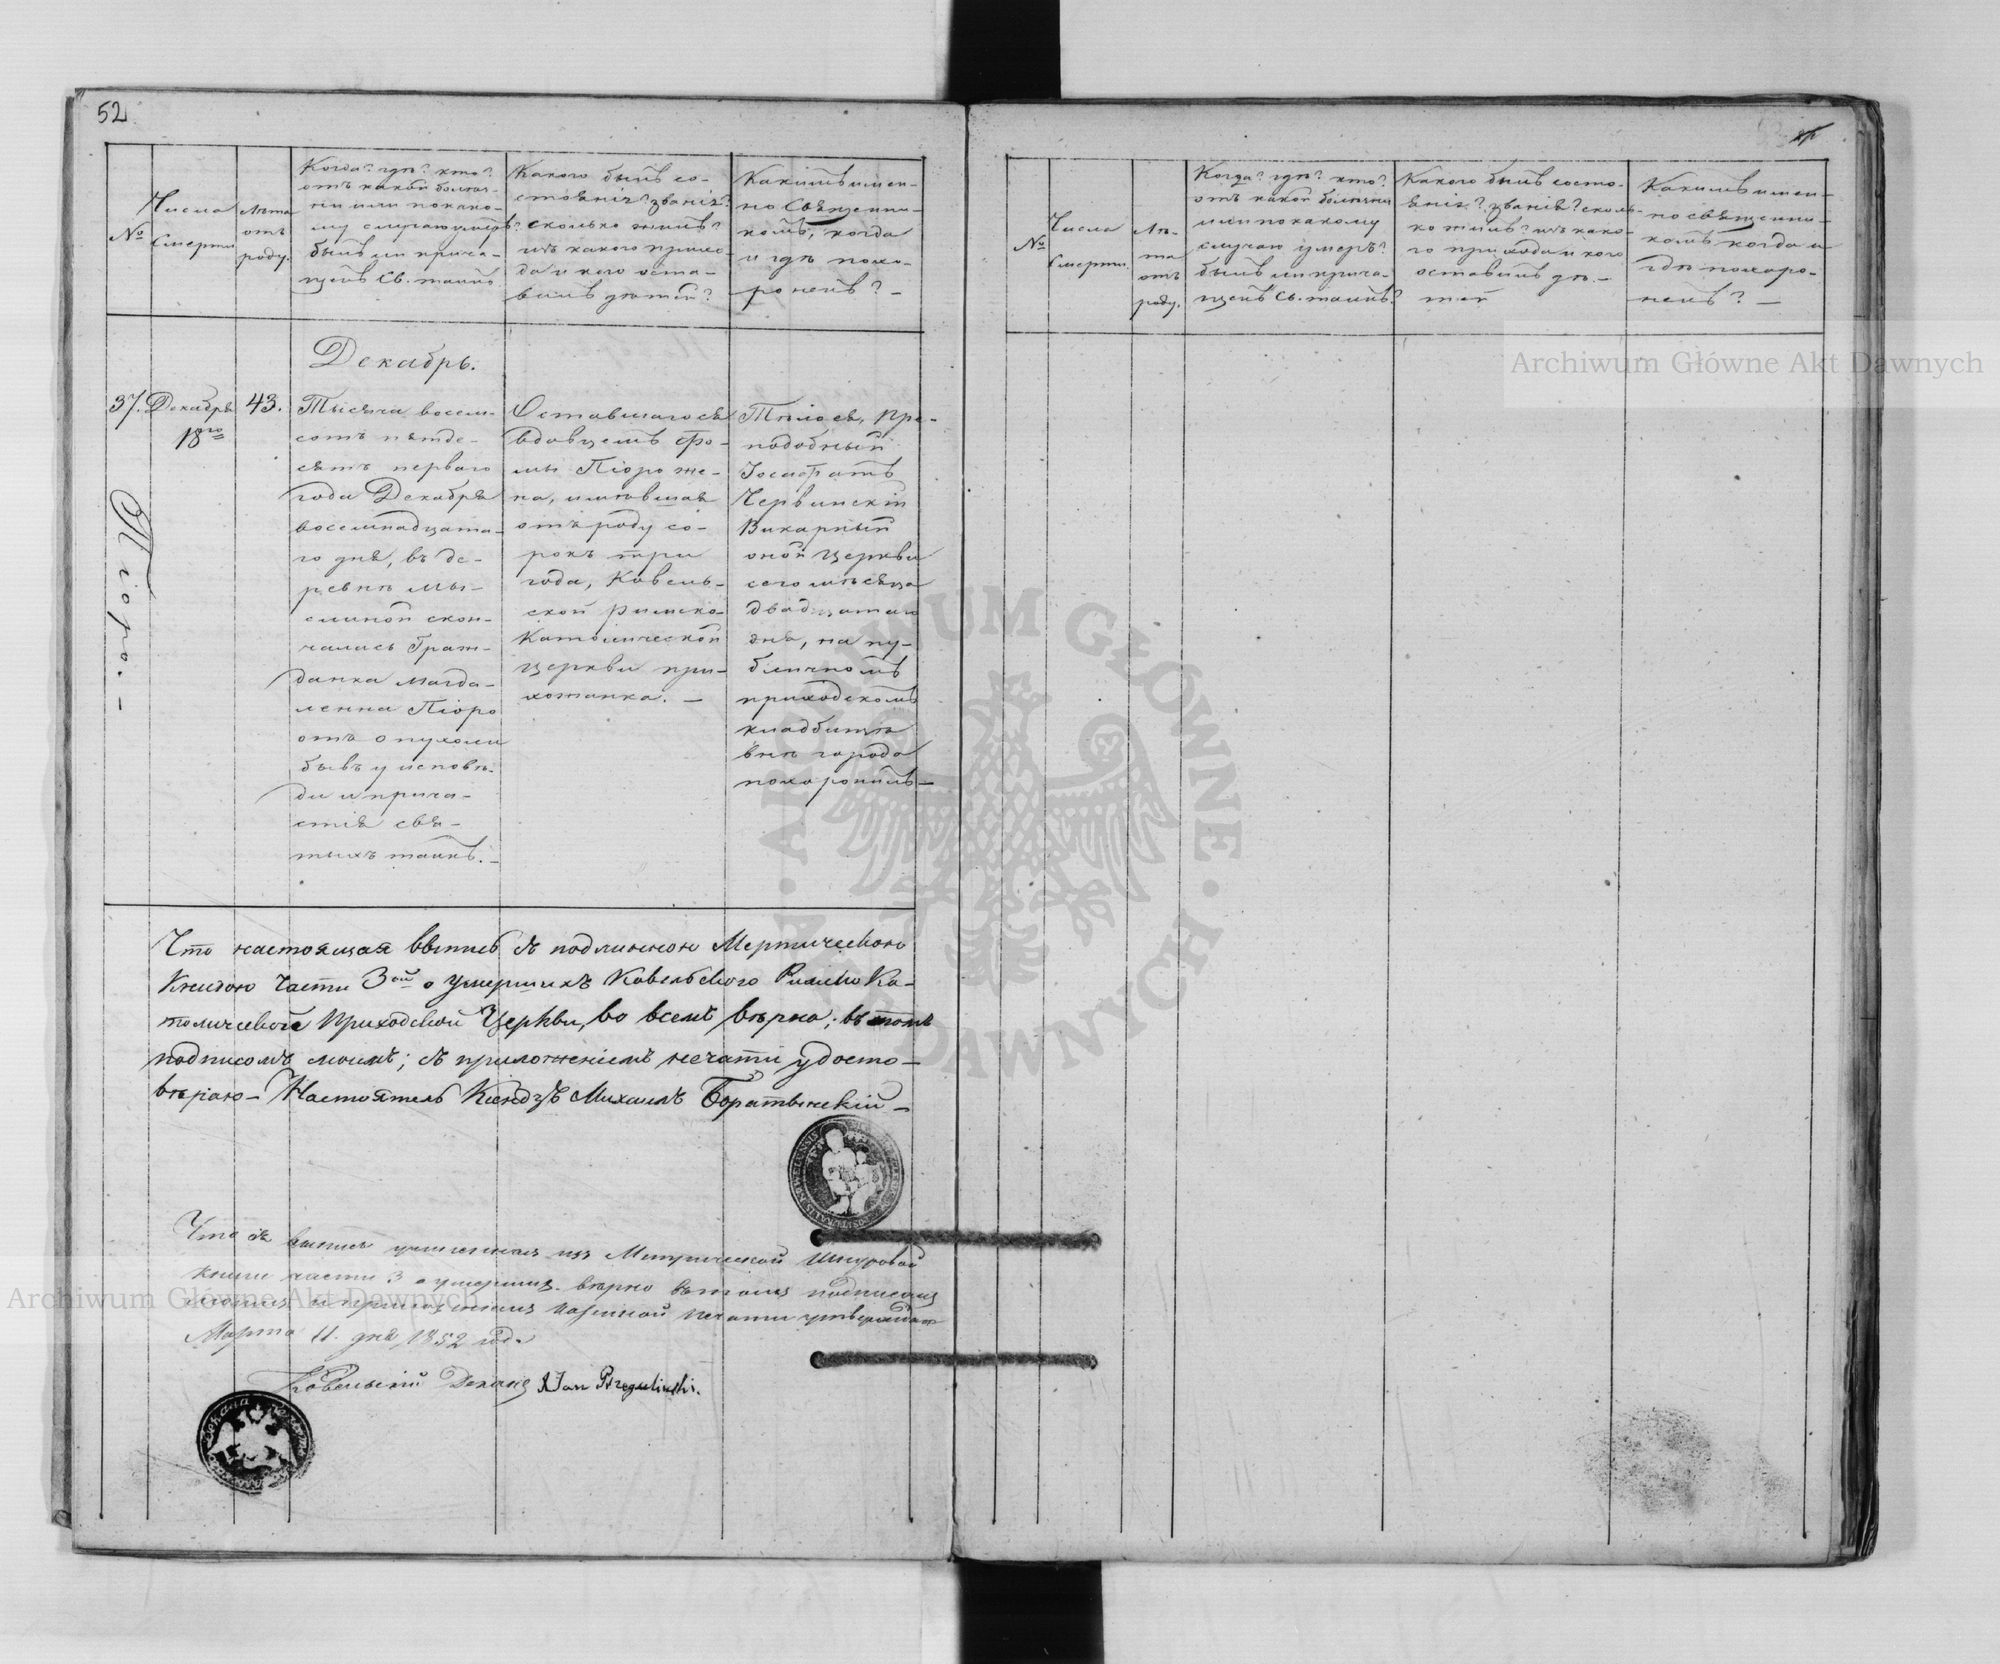 52
№
Числа
Смерти
Лѣта
отъ
роду.
Когда? гдѣ? кто?
отъ какой болѣз-
ни или по како-
му случаю умеръ?
былъ ли прича-
щенъ Св. таинъ
Какого былъ со-
стоянія? званія?
сколько жилъ?
изъ какого прихо-
да и кого оста-
вилъ дѣтей?
Какимъ имен-
но Священни-
комъ, когда
и гдѣ похо-
роненъ? —
Декабрь.
37.
Піоро. —
Декабря
18го
43.
Тысяча восем-
сотъ пятде-
сятъ перваго
года Декабря
восемнадцата-
го дня, въ де-
ревнѣ Мы-
слиной скон-
чалась Граж-
данка Магда-
ленна Піоро
отъ опухоли
бывъ у исповѣ-
ди и прича-
стія свя-
тыхъ таинъ. —
Оставшагося
вдовцемъ Фо-
мы Піоро же-
на, имѣвшая
отъ роду со-
рокъ три
года, Ковель-
ской Римско-
Католической
церкви при-
хожанка. —
Тѣло ея, Пре-
подобный
Іосафатъ
Червинскій
Викарный
оной церкви
сего мѣсяца
двадцатаго
дня, на пу-
бличномъ
приходскомъ
кладбищѣ
внѣ города
похоронилъ —
Что настоящая выпись съ подлинною Мертическою
Книгою Части 3ой о умершихъ Ковельского Римско Ка-
толической Приходской Церкви, во всемъ вѣрна; въ томъ
подписомъ моимъ; съ приложеніемъ печати удосто-
вѣряю — Настоятель Ксендзъ Михаилъ Боратынскій —
Что сія выпись учиненная изъ Метрической Шнуровой
книги части 3 о умершихъ вѣрно въ томъ подписомъ
моимъ и приложеніемъ казенной печати утверждаю
Марта 11. дня 1852 года
Ковельскій Деканъ X Jan
№
Числа
Смерти.
Лѣ-
та
отъ
роду.
Когда? гдѣ? кто?
отъ какой болѣзни
или по какому
случаю умеръ?
былъ ли прича-
щенъ Св. таинъ?
Какого былъ состо-
янія? званія? сколь-
ко жилъ? изъ како-
го прихода и кого
оставилъ дѣ-
тей
Какимъ имен-
но священни-
комъ когда и
гдѣ похоро-
ненъ? —
Archiwum Główne Akt Dawnych
Archiwum Główne Akt Dawnych
ARCHIWUM GŁÓWNE AKT DAWNYCH